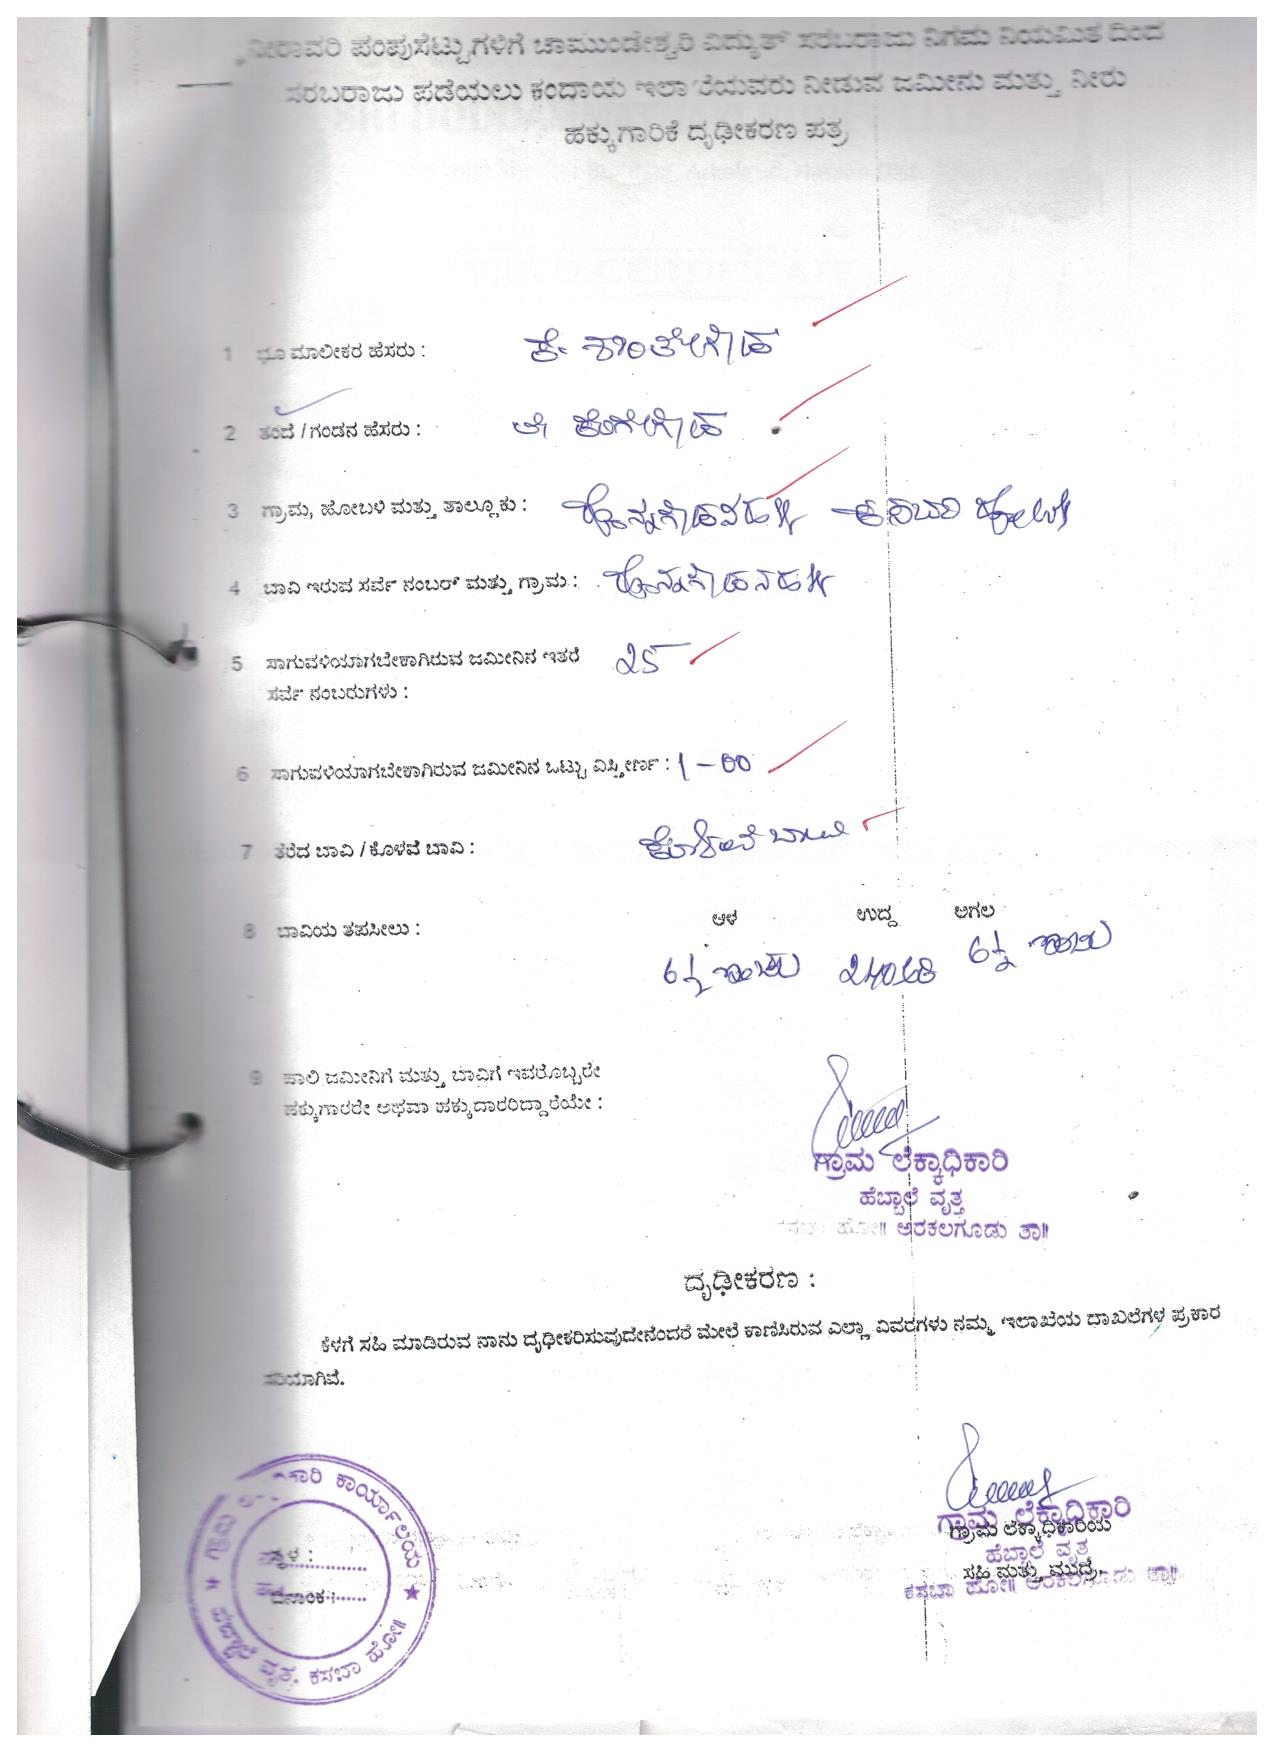 ನೀರಾವರಿ ಪಂಪುಸೆಟ್ಟುಗಳಿಗೆ ಚಾಮುಂಡೇಶ್ವರಿ ವಿದ್ಯುತ್ ಸರಬರಾಜು ನಿಗಮ ನಿಯಮಿತ ದಿಂದ
ಸರಬರಾಜು ಪಡೆಯಲು ಕಂದಾಯ ಇಲಾಖೆಯವರು ನೀಡುವ ಜಮೀನು ಮತ್ತು ನೀರು
ಹಕ್ಕುಗಾರಿಕೆ ದೃಢೀಕರಣ ಪತ್ರ
1 ಭೂ ಮಾಲೀಕರ ಹೆಸರು : ಕೆ
2 ತಂದೆ / ಗಂಡನ ಹೆಸರು :
3 ಗ್ರಾಮ, ಹೋಬಳಿ ಮತ್ತು ತಾಲ್ಲೂಕು :
4 ಬಾವಿ ಇರುವ ಸರ್ವೆ ನಂಬರ್ ಮತ್ತು ಗ್ರಾಮ :
5 ಸಾಗುವಳಿಯಾಗಬೇಕಾಗಿರುವ ಜಮೀನಿನ ಇತರೆ 25
ಸರ್ವೆ ನಂಬರುಗಳು :
6 ಸಾಗುವಳಿಯಾಗಬೇಕಾಗಿರುವ ಜಮೀನಿನ ಒಟ್ಟು ವಿಸ್ತೀರ್ಣ : 1-00
7 ತೆರೆದ ಬಾವಿ / ಕೊಳವೆ ಬಾವಿ : ಕೊಳವೆ ಬಾವಿ
8 ಬಾವಿಯ ತಪಸೀಲು : ಆಳ ಉದ್ದ ಅಗಲ
6½ 6½
9 ಹಾಲಿ ಜಮೀನಿಗೆ ಮತ್ತು ಬಾವಿಗೆ ಇವರೊಬ್ಬರೇ
ಹಕ್ಕುಗಾರರೇ ಅಥವಾ ಹಕ್ಕುದಾರರಿದ್ದಾರೆಯೇ :
ಗ್ರಾಮ ಲೆಕ್ಕಾಧಿಕಾರಿ
ಹೆಬ್ಬಾಲೆ ವೃತ್ತ
ಕಸಬಾ ಹೋ॥ ಅರಕಲಗೂಡು ತಾ॥
ದೃಢೀಕರಣ :
ಕೆಳಗೆ ಸಹಿ ಮಾಡಿರುವ ನಾನು ದೃಢೀಕರಿಸುವುದೇನೆಂದರೆ ಮೇಲೆ ಕಾಣಿಸಿರುವ ಎಲ್ಲಾ ವಿವರಗಳು ನಮ್ಮ ಇಲಾಖೆಯ ದಾಖಲೆಗಳ ಪ್ರಕಾರ
ಸರಿಯಾಗಿವೆ.
ಗ್ರಾಮ ಲೆಕ್ಕಾಧಿಕಾರಿ
ಗ್ರಾಮ ಲೆಕ್ಕಾಧಿಕಾರಿಯ
ಹೆಬ್ಬಾಲೆ ವೃತ್ತ
ಸಹಿ ಮತ್ತು ಮುದ್ರೆ.
ಕಸಬಾ ಹೋ॥ ಅರಕಲಗೂಡು ತಾ॥
ಕಾರ್ಯಾಲಯ
ಸ್ಥಳ :
ದಿನಾಂಕ :
ಹೆಬ್ಬಾಲೆ ವೃತ್ತ, ಕಸಬಾ ಹೋ॥